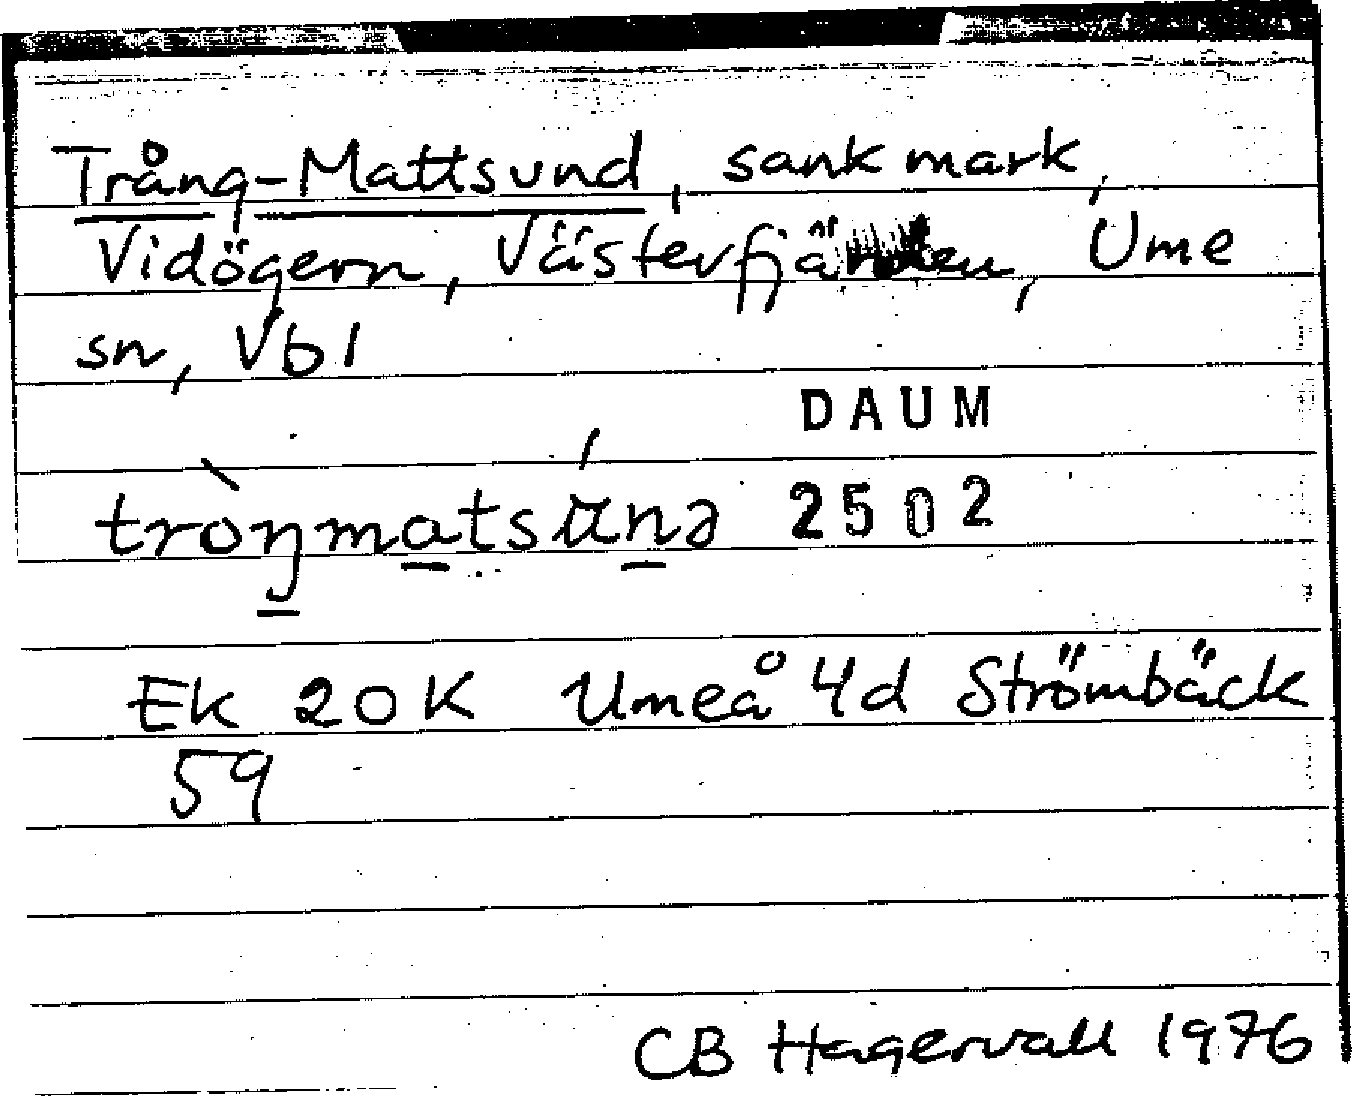 Trång-Mattsund, sank mark,
Vidögern, Västerfjärden, Ume
sn, Vbl
DAUM
tròŋmatsúnə 2502
EK 20K Umeå 4d Strömbäck
59
CB Hagervall 1976